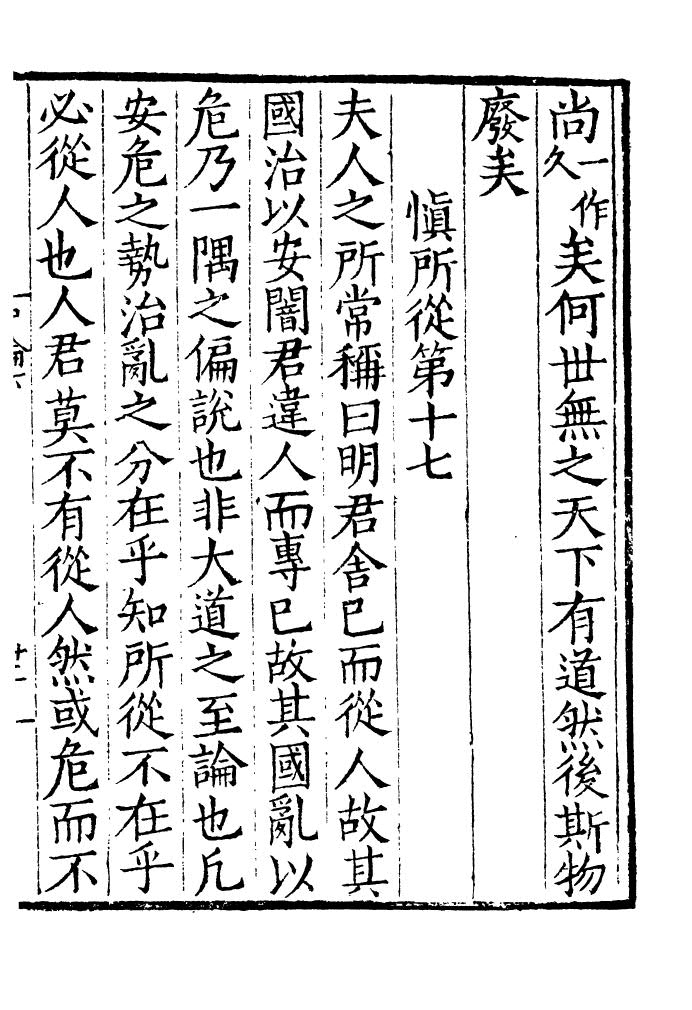 尚一作久矣何世無之天下有道然後斯物
廢矣
慎所從第十七
夫人之所常稱曰明君舍已而從人故其
國治以安闇君違人而專已故其國亂以
危乃一隅之偏說也非大道之至論也凡
安危之勢治亂之分在乎知所從不在乎
必從人也人君莫不有從人然或危而不